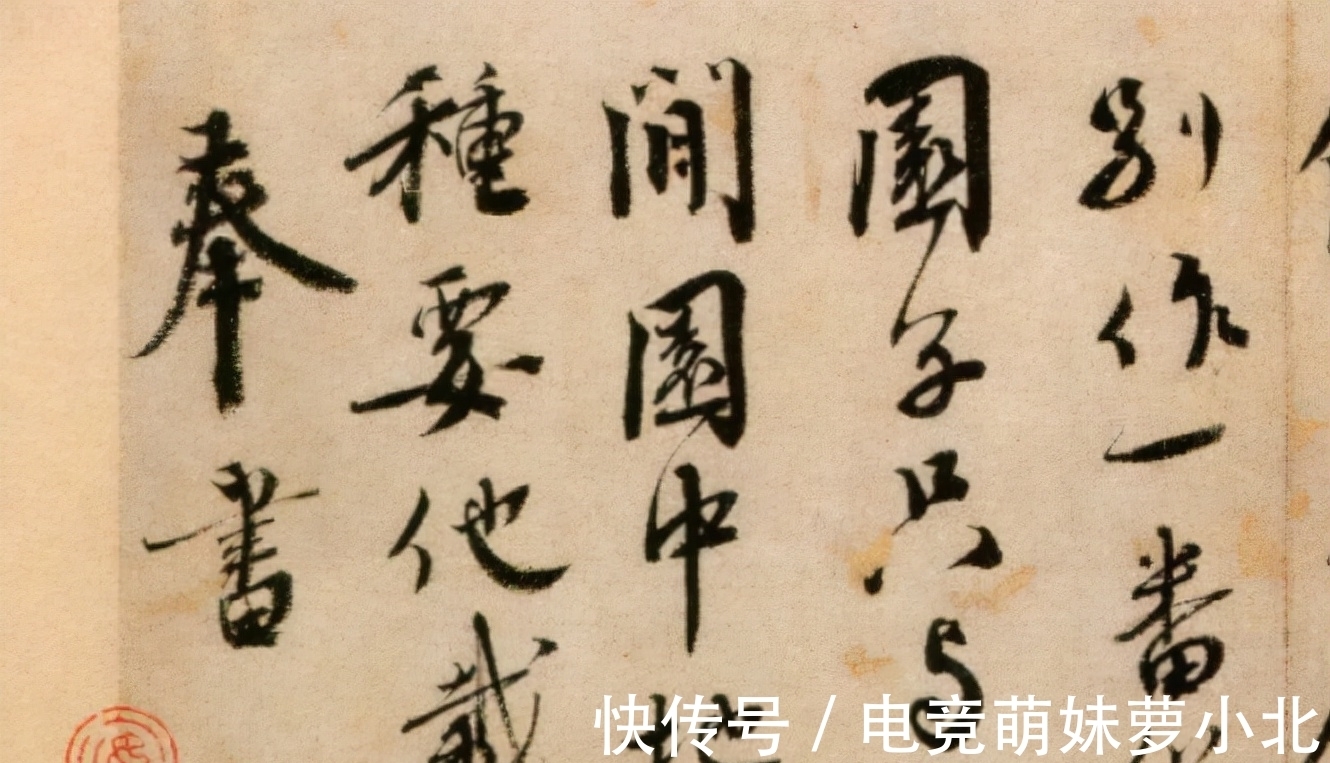 別作一番
園子只与
間園中地
種要他栽
奉書
快传号/电竞萌妹萝小北